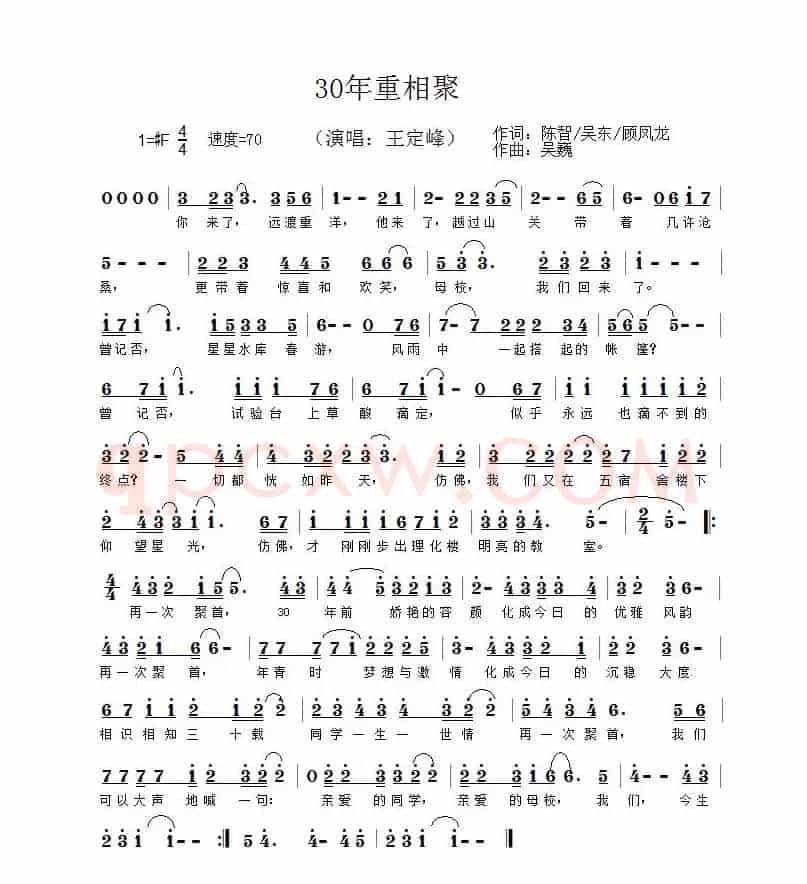 30年重相聚
1=#F 4/4 速度=70 （演唱：王定峰） 作词：陈智/吴东/顾凤龙
作曲：吴巍
0000 | 3 233. 356 | 1-- 21 | 2- 2235 | 2-- 65 | 6- 0617 |
你 来了， 远渡重 洋， 他来 了，越过山 关 带 着 几许沧
5--- | 223 445 666 | 533. 2323 | 2--- |
桑， 更带着 惊喜和 欢笑， 母校， 我们回来 了。
1711. 15335 | 6-- 0 76 | 7-7 222 234 | 5655- |
曾记否， 星星水库春游， 风雨 中 一起搭起的帐 篷？
6 711. 111 76 | 6 711- 0 67 | 11 11 112 |
曾 记否， 试验台 上草 酸 滴定， 似乎 永远 也滴不到的
322- 5 44 | 4 32233. 12 | 3 222227 122 |
终点？ 一 切都 恍 如昨 天， 仿佛，我 们又在 五宿 舍楼下
2 43311. 67 | 1 1116712 3334. | 5- | 2/4 5- |:
仰 望星 光， 仿佛，才 刚刚步出理化楼 明亮的教 室。
4/4 432 155. 43 | 44 53213 | 2- 43334 | 32217- |
再一次 聚首， 30 年前 娇艳的容 颜 化成今日 的 优雅 风韵
43 21 66- | 77 771 2225 | 3- 43321 | 22123- |
再一次 聚 首， 年青 时 梦想与激 情 化成今日 的 沉稳 大度
67 112 122 | 23434 322 | 54346. 56 |
相识 相知三 十载 同学一生一 世情 再一次 聚首， 我们
7777 12 322 | 022 3322 | 22233 166. 5 | 4-- 43 |
可以大声 地喊 一句： 亲爱 的同学， 亲爱 的母校， 我 们，今生
2311-- :| 2345 4- 45 | 1--- |
qpcxw.COM